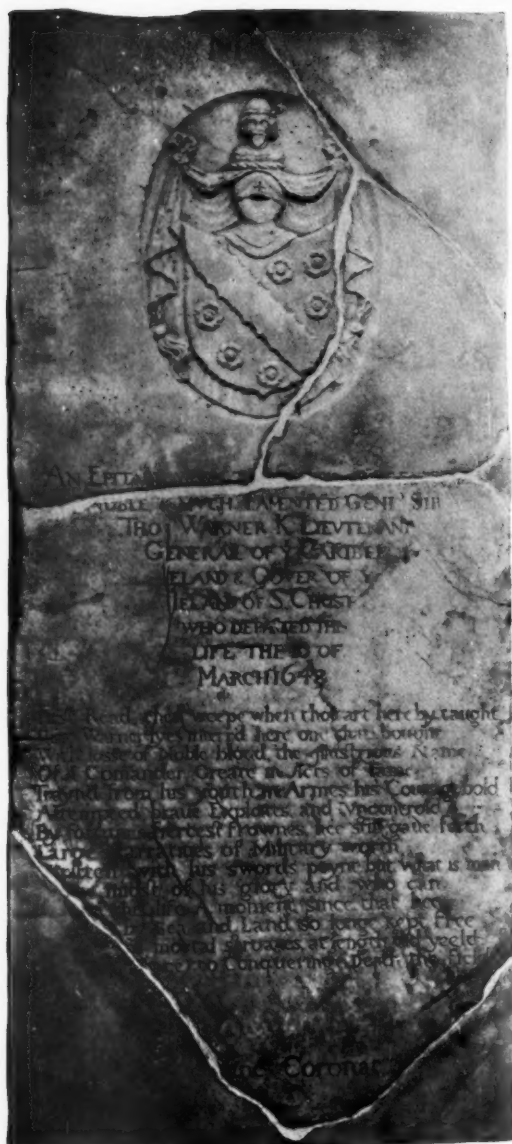 AN EPITA
NOBLE & MVCH LAMENTED GENT SIR
THO WARNER K LIEVTENAN
GENERALL OF Y CARIBEE
IELAND & GOVER OF Y
IELAND OF S CHRIST
WHO DEPARTED THIS
LIFE THE 10 OF
MARCH 1648
Read then weepe when thou art here by taught
Warner lyes interred here one that bought
With losse of Noble blood the Illustrious Name
Of A Comander Greate in Acts of fame
Traynd from his youth in Armes his Courage bold
Attempted braue Exploites and Vncontrold
By fortunes fiercest frownes hee still gaue forth
Large Narratiues of Military worth
with his swords poynt but what is man
midst of his glory and who can
moment since that hee
sea and Land so long kept free
mortal stroakes at length did yeeld
to Conquering Death the field
Coronat